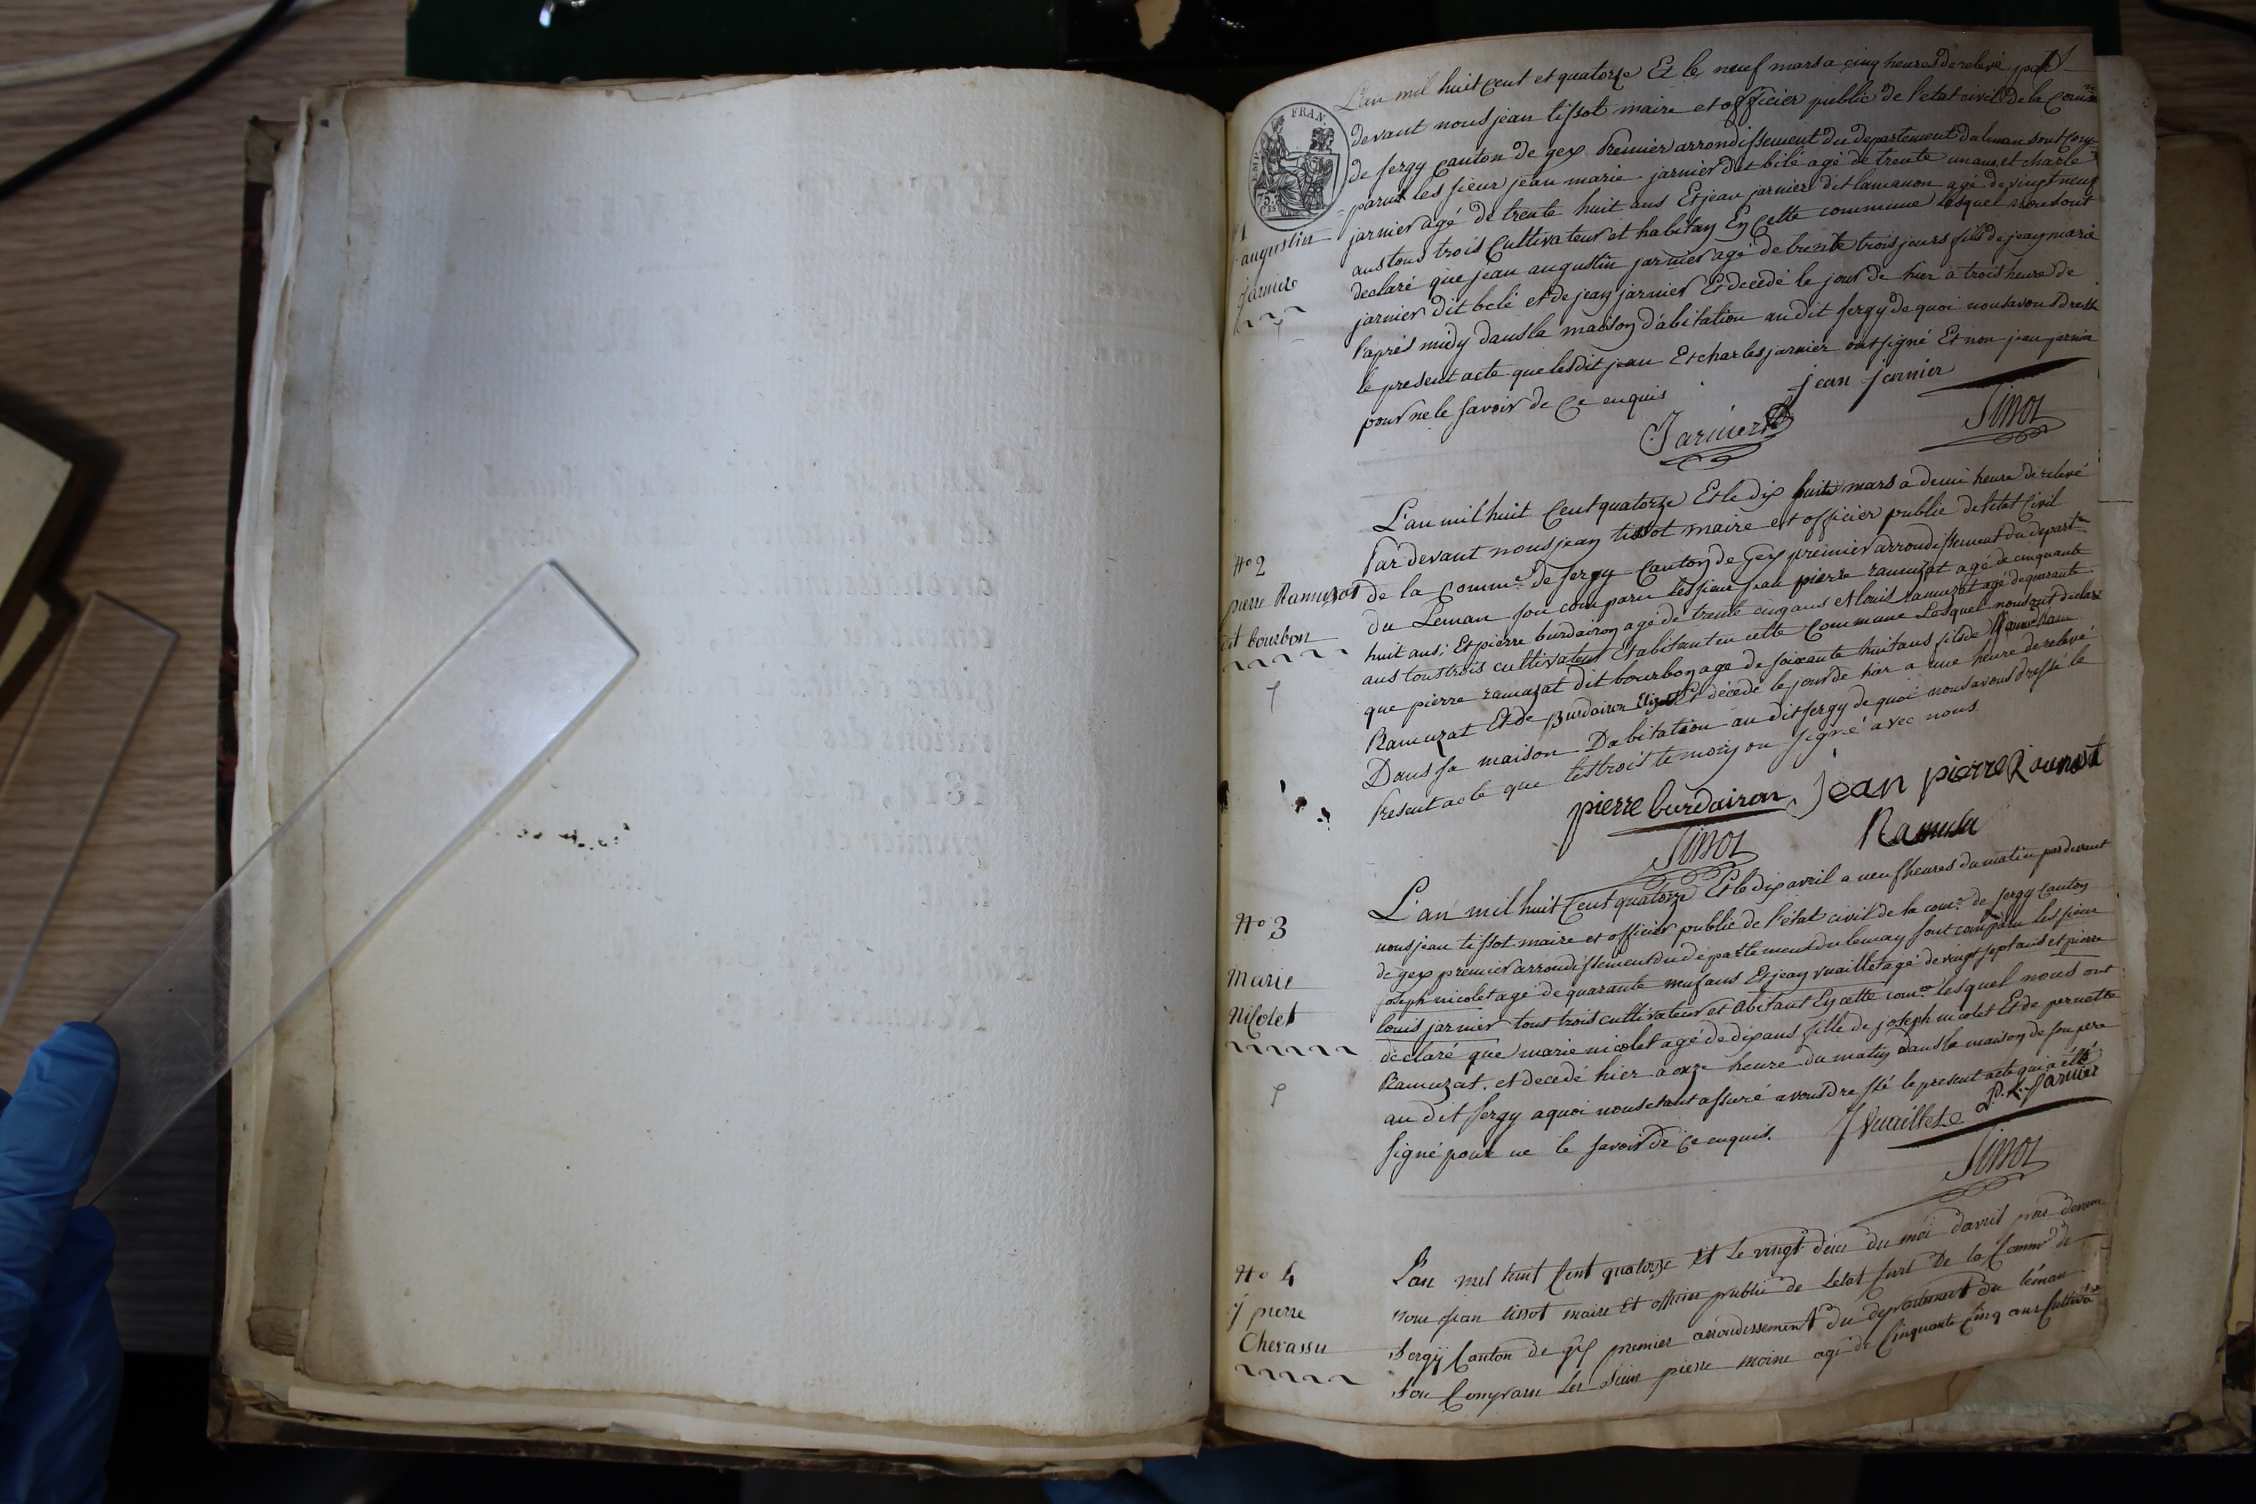 L'an mil huit Cent et quatorze Et le neuf mars a cinq heures de relevé par
devant nous jean tissot maire et officier public de l'état civil de la Comm.ne
de sergy canton de gex Premier arrondissement du departement du leman sont com-
parus les sieur jean marie jarnier dit bélé agé de trente un ans et charle
jarnier agé de trente huit ans Et jean jarnier dit lamanon agé de vingt neuf
ans tous trois Cultivateur et habitan En Cette commune lesquel nous ont
declaré que jean augustin jarnier agé de trente trois jours fils de jean marie
jarnier dit belé et de jean jarnier Et decedé le jour de hier a trois heure de
l'aprés midy dans la maison d'abitation au dit sergy de quoi nous avons dressé
le present acte que lesdit jean Et charles jarnier ont signé Et non jean jarnier
pour ne le savoir de Ce enquis
jean jarnier
Jarnier
Tissot
FRAN.
EMP.
75.
1
augustin
Jarnier
L'an mil huit Cent quatorze Et le dix huit mars a demi heure de relevé
Par devant nous jean tissot maire et officier public de l'état Civil
de la Comm.e de sergy Canton de Gex premier arrondissement du depart.nt
du Leman son comparu les sieur jean pierre ramuzat agé de cinquante
huit ans; Et pierre burdairon agé de trente cinq ans et louis ramuzat agé de quarante
ans tous trois cultivateur Et abitant en cette Commune Lesquel nous ont declaré
que pierre ramuzat dit bourbon agé de soixante huit ans fils de
Ramuzat Et de Burdairon Et décédé le jour de hier a une heure de relevé
Dans sa maison D'abitation au dit sergy de quoi nous avons dressé le
Present acte que les trois temoin on signé avec nous
pierre burdairon jean pierre Ramusat
Tissot Ramusa
No 2
pierre Ramuzat
dit bourbon
L'an mil huit Cent quatorze Et le dix avril a neuf heures du matin par devant
nous jean tissot maire et officier public de l'état civil de la com.e de sergy canton
de gex premier arrondissement du departement du leman sont comparu les sieur
joseph nicolet agé de quarante neuf ans Et jean vuaillet agé de vingt sept ans et pierre
louis jarnier tous trois cultivateur et abitant En cette com.e lesquel nous ont
declaré que marie nicolet agé de dix ans fille de joseph nicolet Et de pernette
Ramuzat. et decedé hier a onze heure du matin dans la maison de son pere
au dit sergy a quoi nous etant assuré avons dressé le present acte qui a été
signé pour ne le savoir de Ce enquis.
J Vuaillet P. L. Jarnier
Tissot
No 3
Marie
Nicolet
L'an mil huit Cent quatorze Et Le vingt deux du moi d'avril par devan
nous jean tissot maire Et officier public de Letat sivil De la Comm.e de
Sergy Canton de gex premier arrondissement Du departement Du léman
Son Comparu Les Sieur pierre moine agé de Cinquante Cinq ans Cultiva
No 4
J pierre
Chevassu